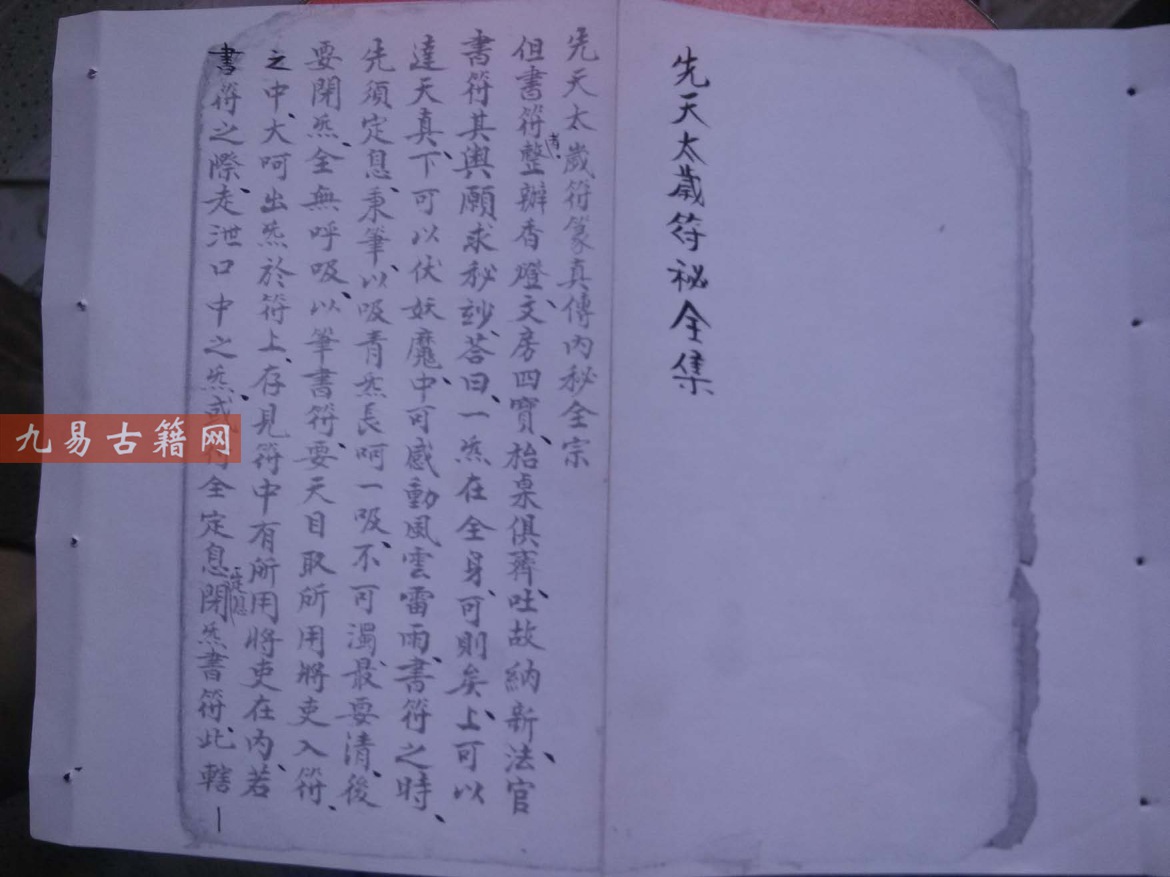 先天太歲符祕全集
先天太歲符篆真傳內秘全宗
但書符者整辦香燈、文房四寶、枱桌俱齊、吐故納新、法官
書符其與願求秘訣、答曰、一炁在全身、可則矣、上可以
達天真、下可以伏妖魔、中可感動風雲雷雨、書符之時、
先須定息、秉筆、以吸青炁長呵一吸、不可濁、最要清、後
要閉炁、全無呼吸、以筆書符、要天目取所用將吏入符、
之中、大呵出炁於符上、存見符中有所用將吏在內、若
書符之際、走泄口中之炁、或 全定息閉炁書符、此轄
定息
一
九易古籍网